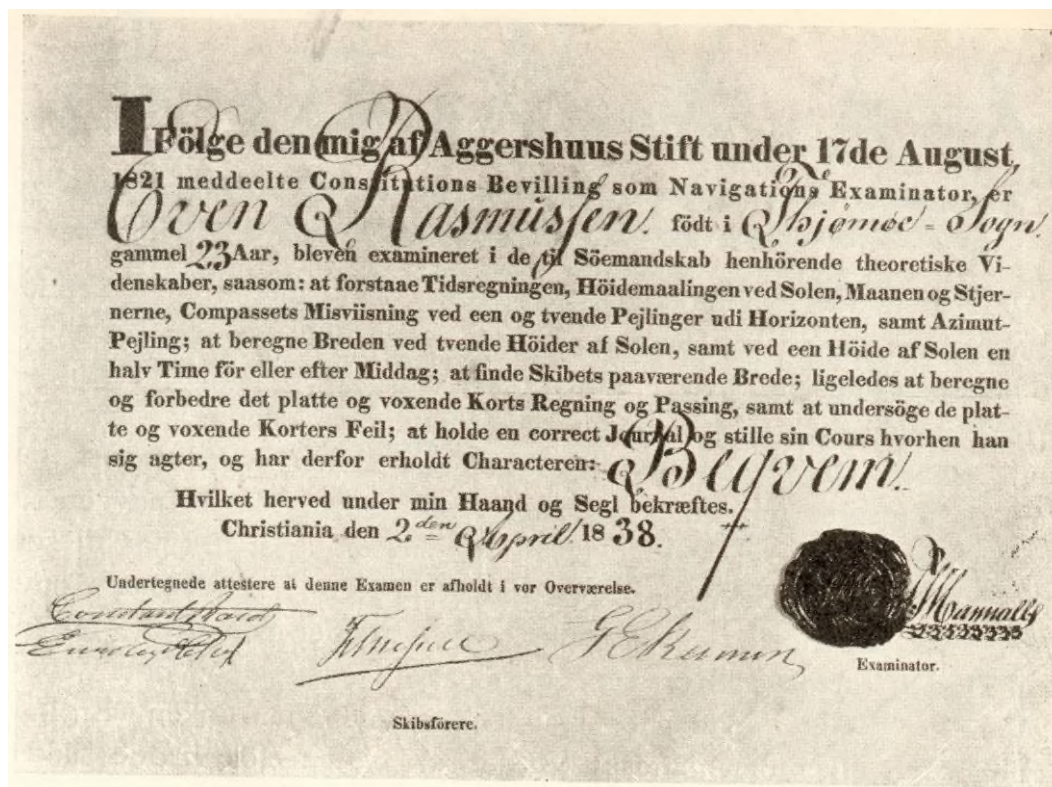 I Fölge den mig af Aggershuus Stift under 17de August
1821 meddeelte Constitutions Bevilling som Navigations Examinator, er
Even Rasmussen. födt i Skjømöe - Sogn.
gammel 23 Aar, bleven examineret i de til Söemandskab henhörende theoretiske Vi-
denskaber, saasom: at forstaae Tidsregningen, Höidemaalingen ved Solen, Maanen og Stjer-
nerne, Compassets Misviisning ved een og tvende Pejlinger udi Horizonten, samt Azimut-
Pejling; at beregne Breden ved tvende Höider af Solen, samt ved een Höide af Solen en
halv Time för eller efter Middag; at finde Skibets paaværende Brede; ligeledes at beregne
og forbedre det platte og voxende Korts Regning og Passing, samt at undersöge de plat-
te og voxende Korters Feil; at holde en correct Journal og stille sin Cours hvorhen han
sig agter, og har derfor erholdt Characteren: Beqvem.
Hvilket herved under min Haand og Segl bekræftes.
Christiania den 2.den April 1838.
Undertegnede attestere at denne Examen er afholdt i vor Overværelse.
Examinator.
Skibsförere.